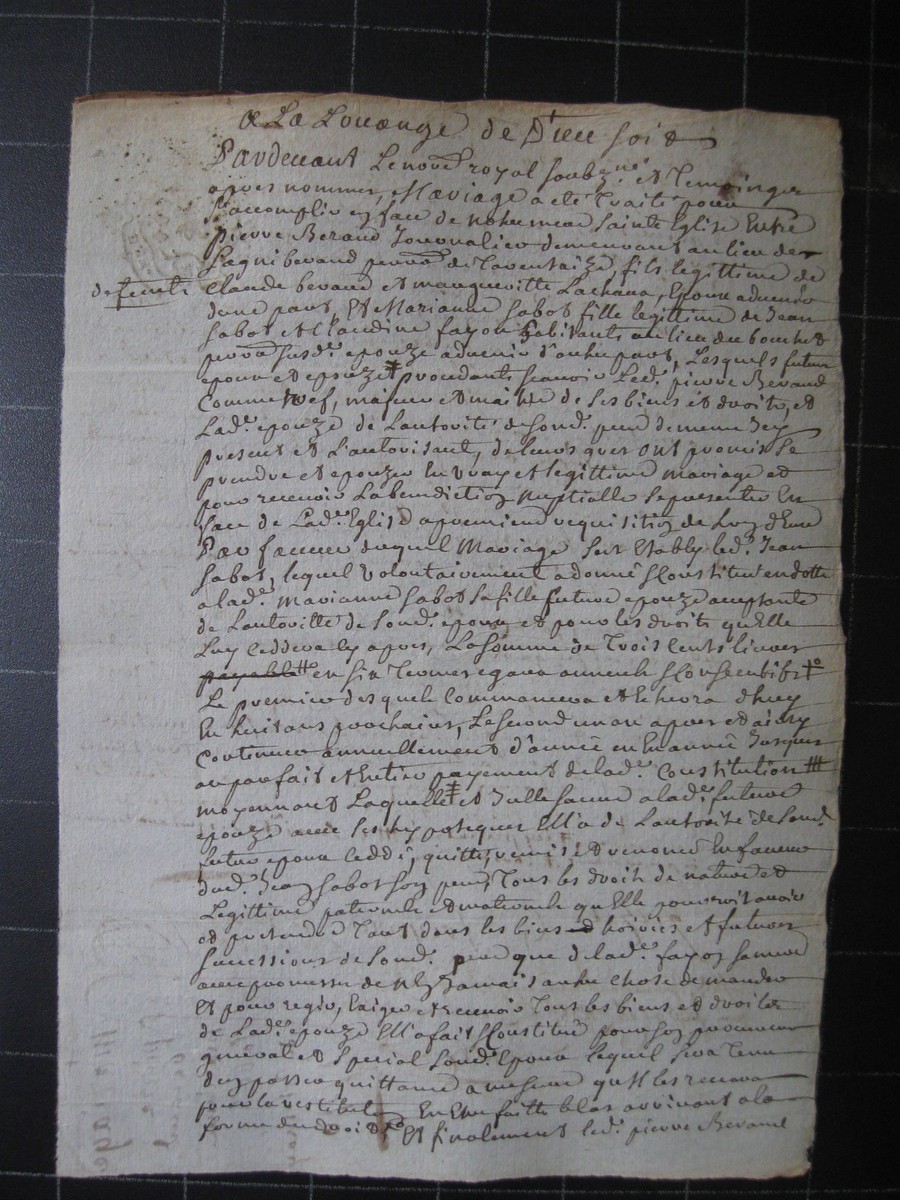 A La Louange de Dieu soit
Pardevant Le nore royal soubzné et Temoings
apres nommes, Mariage a eté Traité pour
S'accomplir en face de notre mere Sainte Eglise Entre
pierre Beraud Journalier demeurant au lieu de
parroe de fils legittime de
defunts
Claude beraud et margueritte Lachana, Epoux advenir
dune part, Et Marianne Sabot fille legittime de Jean
Sabot et Claudine fayon habitants au lieu du
parroe susde epouze advenir d'autre part, Lesquels futurs
epoux et epouze procedants scavoir Led. pierre Beraud
Comme majeur et maitre de ses biens et droits, et
Lade epouze de Lautorité de sond. pere de meme Icy
present et L'autorisant, de leurs grés ont promis Se
prendre et epouzer En vray et legittime mariage et
pour recevoir La benediction nuptialle Se presenter En
face de Lade Eglise a premiere requisition de Lun d'eux
En faveur duquel Mariage S'est Etably led. Jean
Sabot, lequel volontairement a donné et Constitué en dotte
a lade Marianne Sabot Sa fille future epouze acceptante
de Lautorité de Sond. epoux et pour les droits quelle
Luy ceddera cy apres, La somme de Trois Cents livres
payable en six Termes egaux annuels et Consecutifs
Le premier desquels Commancera et echeora d'huy
En huit ans prochains, Le second un an apres et ainsy
Continuer annuellement d'année en En année Jusques
au parfait et Entier payement de lade Constitution
moyennant Laquelle et Icelle a lade future
epouze avec ses hypoteques Ell'a de Lautorité de Sond.
futur epoux ceddé, quitté, remis et renoncé En faveur
dud. Jean Sabot Son pere, Tous les droits de nature et
Legittime paternels et maternels qu'Elle pourroit avoir
et pretendre Tant dans les biens hoiries et futures
successions de Sond. pere que de lade fayon
avec promesse de n'En Jamais autre chose demander
Et pour regir, Exiger et recevoir Tous les biens et droits
de Lade epouze Ell'a fait et Constitué pour Son procureur
general et Special Sond. Epoux lequel Sera Tenu
d'En passer quittance a mesure qu'Il les recevra
pour la restitution En Etre faitte le Cas arrivant a la
forme du droit Et finalement led. pierre Beraud